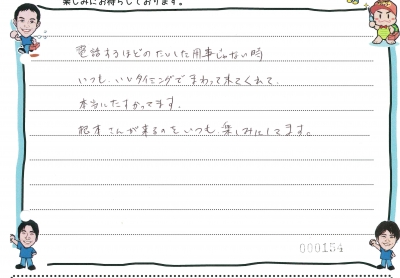 楽しみにお待ちしております。
電話するほどのたいした用事じゃない時
いつも、いいタイミングでまわって来てくれて、
本当にたすかってます。
さんが来るのをいつも楽しみにしてます。
000154